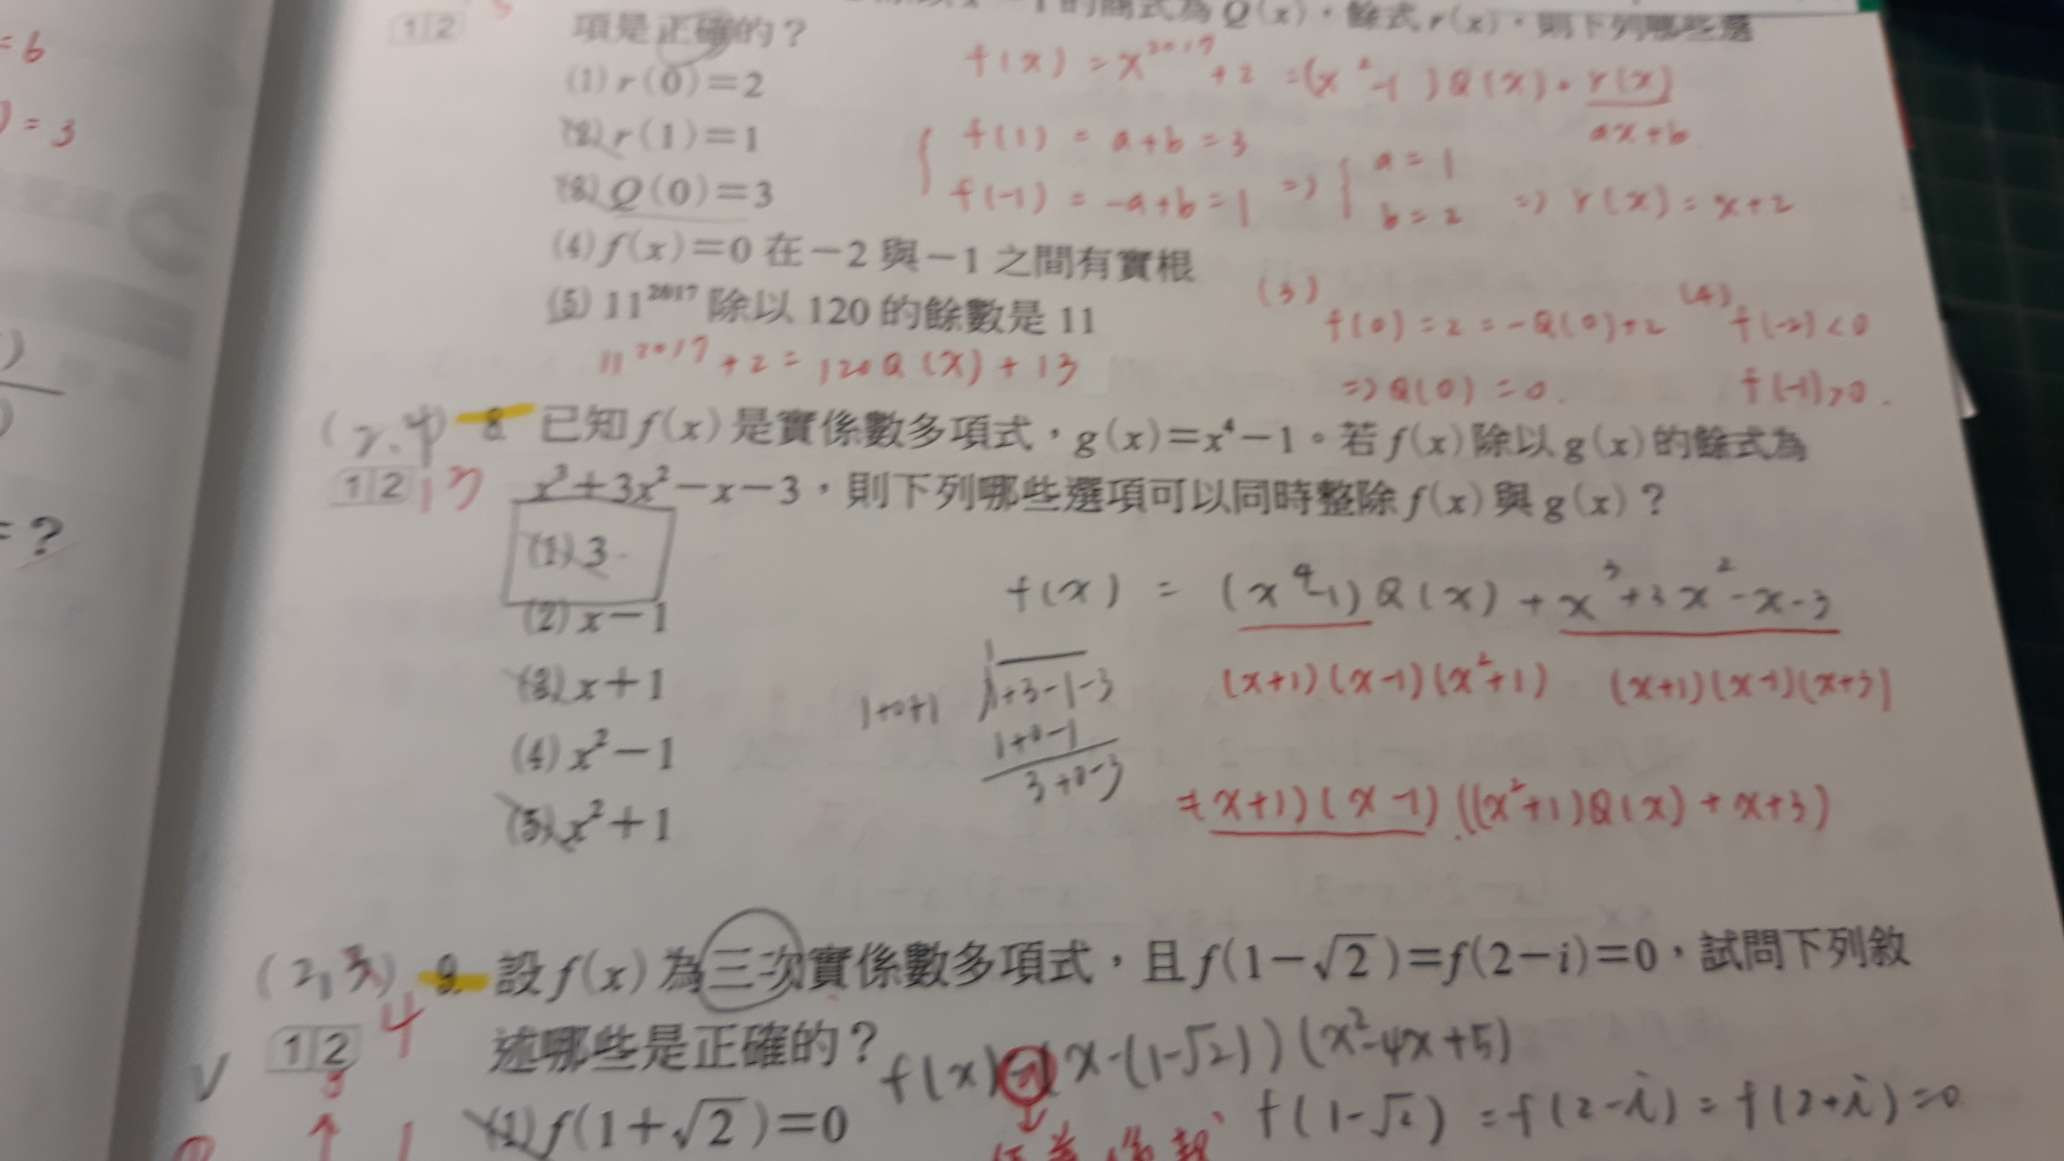 的商式為 Q(x)，餘式 r(x)，則下列哪些選
12 項是正確的？
f(x) = x²⁰¹⁷ + 2 = (x²-1)Q(x) + r(x)
ax+b
= 6
(1) r(0)=2
(2) r(1)=1
f(1) = a+b = 3
a = 1
) = 3
(3) Q(0)=3
f(-1) = -a+b = 1 => b = 2 => r(x) = x+2
(4) f(x)=0 在－2 與－1 之間有實根
(5) 11²⁰¹⁷ 除以 120 的餘數是 11
(3) f(0) = 2 = -Q(0)+2
(4) f(-2) < 0
11²⁰¹⁷ + 2 = 120Q(x) + 13
=> Q(0) = 0.
f(-1) > 0.
(2.4) 8. 已知 f(x) 是實係數多項式，g(x)=x⁴－1。若 f(x) 除以 g(x) 的餘式為
12 x³＋3x²－x－3，則下列哪些選項可以同時整除 f(x) 與 g(x)？
= ?
(1) 3
f(x) = (x⁴-1)Q(x) + x³+3x²-x-3
(2) x－1
(3) x＋1
1+0+1
1
1+3-1-3
1+0-1
3+0-3
(x+1)(x-1)(x²+1) (x+1)(x-1)(x+3)
(4) x²－1
(5) x²＋1
= (x+1)(x-1)((x²+1)Q(x) + x+3)
(2,3) 9. 設 f(x) 為三次實係數多項式，且 f(1－√2)=f(2－i)=0，試問下列敘
12 4 述哪些是正確的？
f(x) = (x-(1-√2))(x²-4x+5)
(1) f(1+√2)=0
f(1-√2) = f(2-i) = f(2+i) = 0